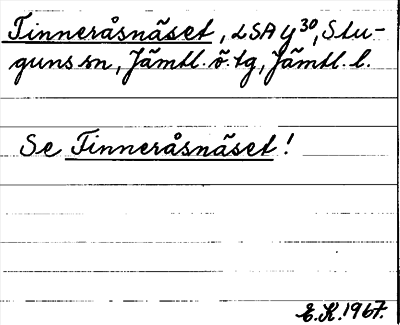 Tinneråsnäset, LSA y30, Stu-
guns sn, Jämtl. ö. tg, Jämtl. l.
Se Tinneråsnäset!
E.K. 1967.